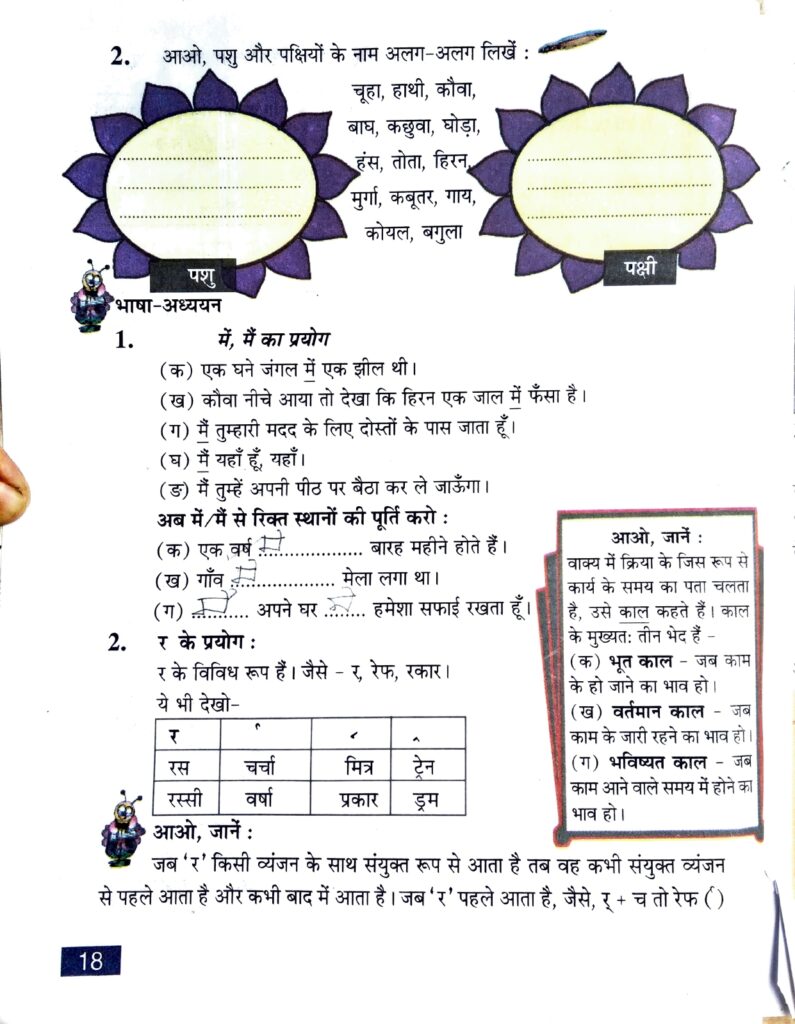 2. आओ, पशु और पक्षियों के नाम अलग-अलग लिखें :
चूहा, हाथी, कौवा,
बाघ, कछुवा, घोड़ा,
हंस, तोता, हिरन,
मुर्गा, कबूतर, गाय,
कोयल, बगुला
पशु
पक्षी
भाषा-अध्ययन
1. में, मैं का प्रयोग
(क) एक घने जंगल में एक झील थी।
(ख) कौवा नीचे आया तो देखा कि हिरन एक जाल में फँसा है।
(ग) मैं तुम्हारी मदद के लिए दोस्तों के पास जाता हूँ।
(घ) मैं यहाँ हूँ, यहाँ।
(ङ) मैं तुम्हें अपनी पीठ पर बैठा कर ले जाऊँगा।
अब में/मैं से रिक्त स्थानों की पूर्ति करो :
(क) एक वर्ष में .................. बारह महीने होते हैं।
(ख) गाँव में .................. मेला लगा था।
(ग) मैं .......... अपने घर में ....... हमेशा सफाई रखता हूँ।
2. र के प्रयोग :
र के विविध रूप हैं। जैसे - र, रेफ, रकार।
ये भी देखो-
र र्  ्र  ्र
रस चर्चा मित्र ट्रेन
रस्सी वर्षा प्रकार ड्रम
आओ, जानें :
जब ‘र’ किसी व्यंजन के साथ संयुक्त रूप से आता है तब वह कभी संयुक्त व्यंजन
से पहले आता है और कभी बाद में आता है। जब ‘र’ पहले आता है, जैसे, र् + च तो रेफ (र्)
आओ, जानें :
वाक्य में क्रिया के जिस रूप से
कार्य के समय का पता चलता
है, उसे काल कहते हैं। काल
के मुख्यतः तीन भेद हैं -
(क) भूत काल - जब काम
के हो जाने का भाव हो।
(ख) वर्तमान काल - जब
काम के जारी रहने का भाव हो।
(ग) भविष्यत काल - जब
काम आने वाले समय में होने का
भाव हो।
18